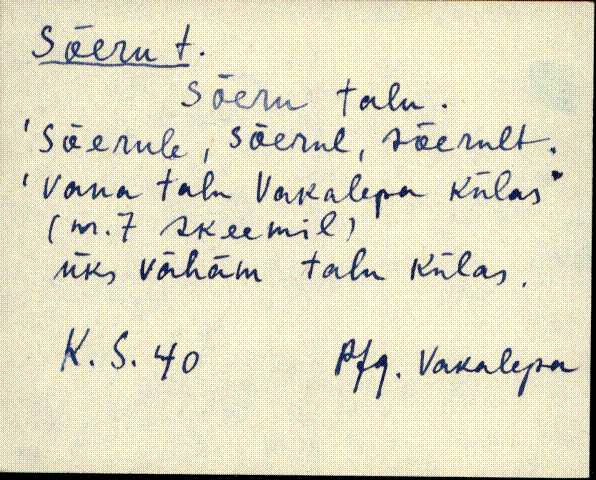 Sõeru t.
Sõeru talu.
'Sõerule, sõerul, sõerult.
'Vana talu Vakalepa külas"
(nr. 7 skeemil)
üks vähäm talu külas.
K. S. 40 Pfg. Vakalepa